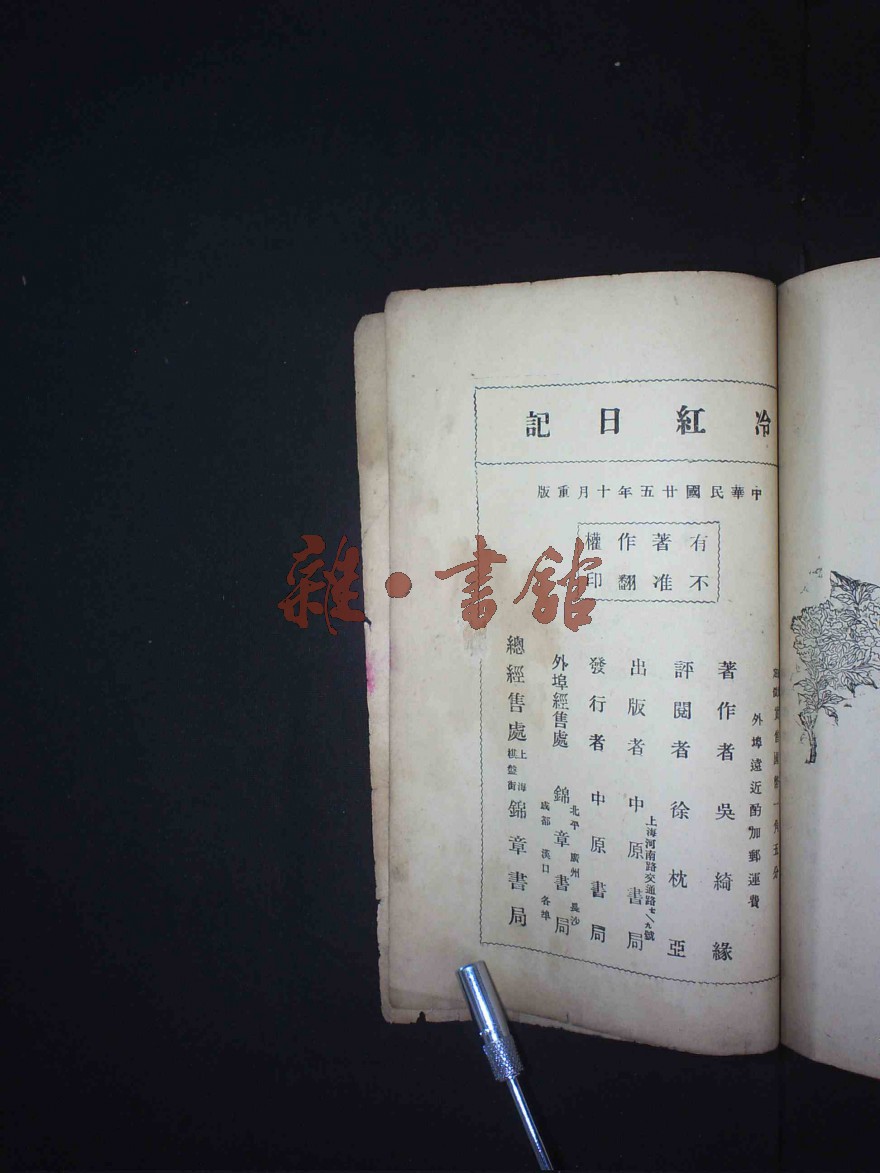 冷紅日記
中華民國廿五年十月重版
有著作權
不准翻印
外埠遠近酌加郵運費
著作者 吳綺緣
評閱者 徐枕亞
上海河南路交通路七八九號
出版者 中原書局
發行者 中原書局
外埠經售處 北平 廣州 長沙 成都 漢口 各埠 錦章書局
總經售處 上海棋盤街 錦章書局
雜·書館